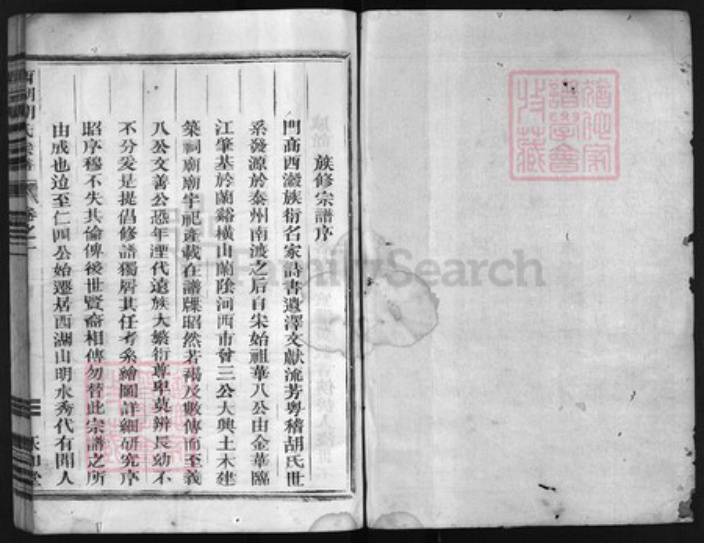 族修宗譜序
門高西瀫族衍名家詩書遺澤文獻流芳粵稽胡氏世
系發源於泰州南渡之后自宋始祖華八公由金華臨
江肇基於蘭谿橫山蘭陰河西市曾三公大興土木建
築祠廟廟宇祀產載在譜牒昭然若揭及數傳而至義
八公文善公恐年湮代遠族大繁衍尊卑莫辨長幼不
不分爰是提倡修譜獨肩其任考系繪圖詳細研究序
昭序穆不失其倫俾後世賢裔相傳勿替此宗譜之所
由成也迨至仁四公始遷居西湖山明水秀代有聞人
卷之一
FamilySearch